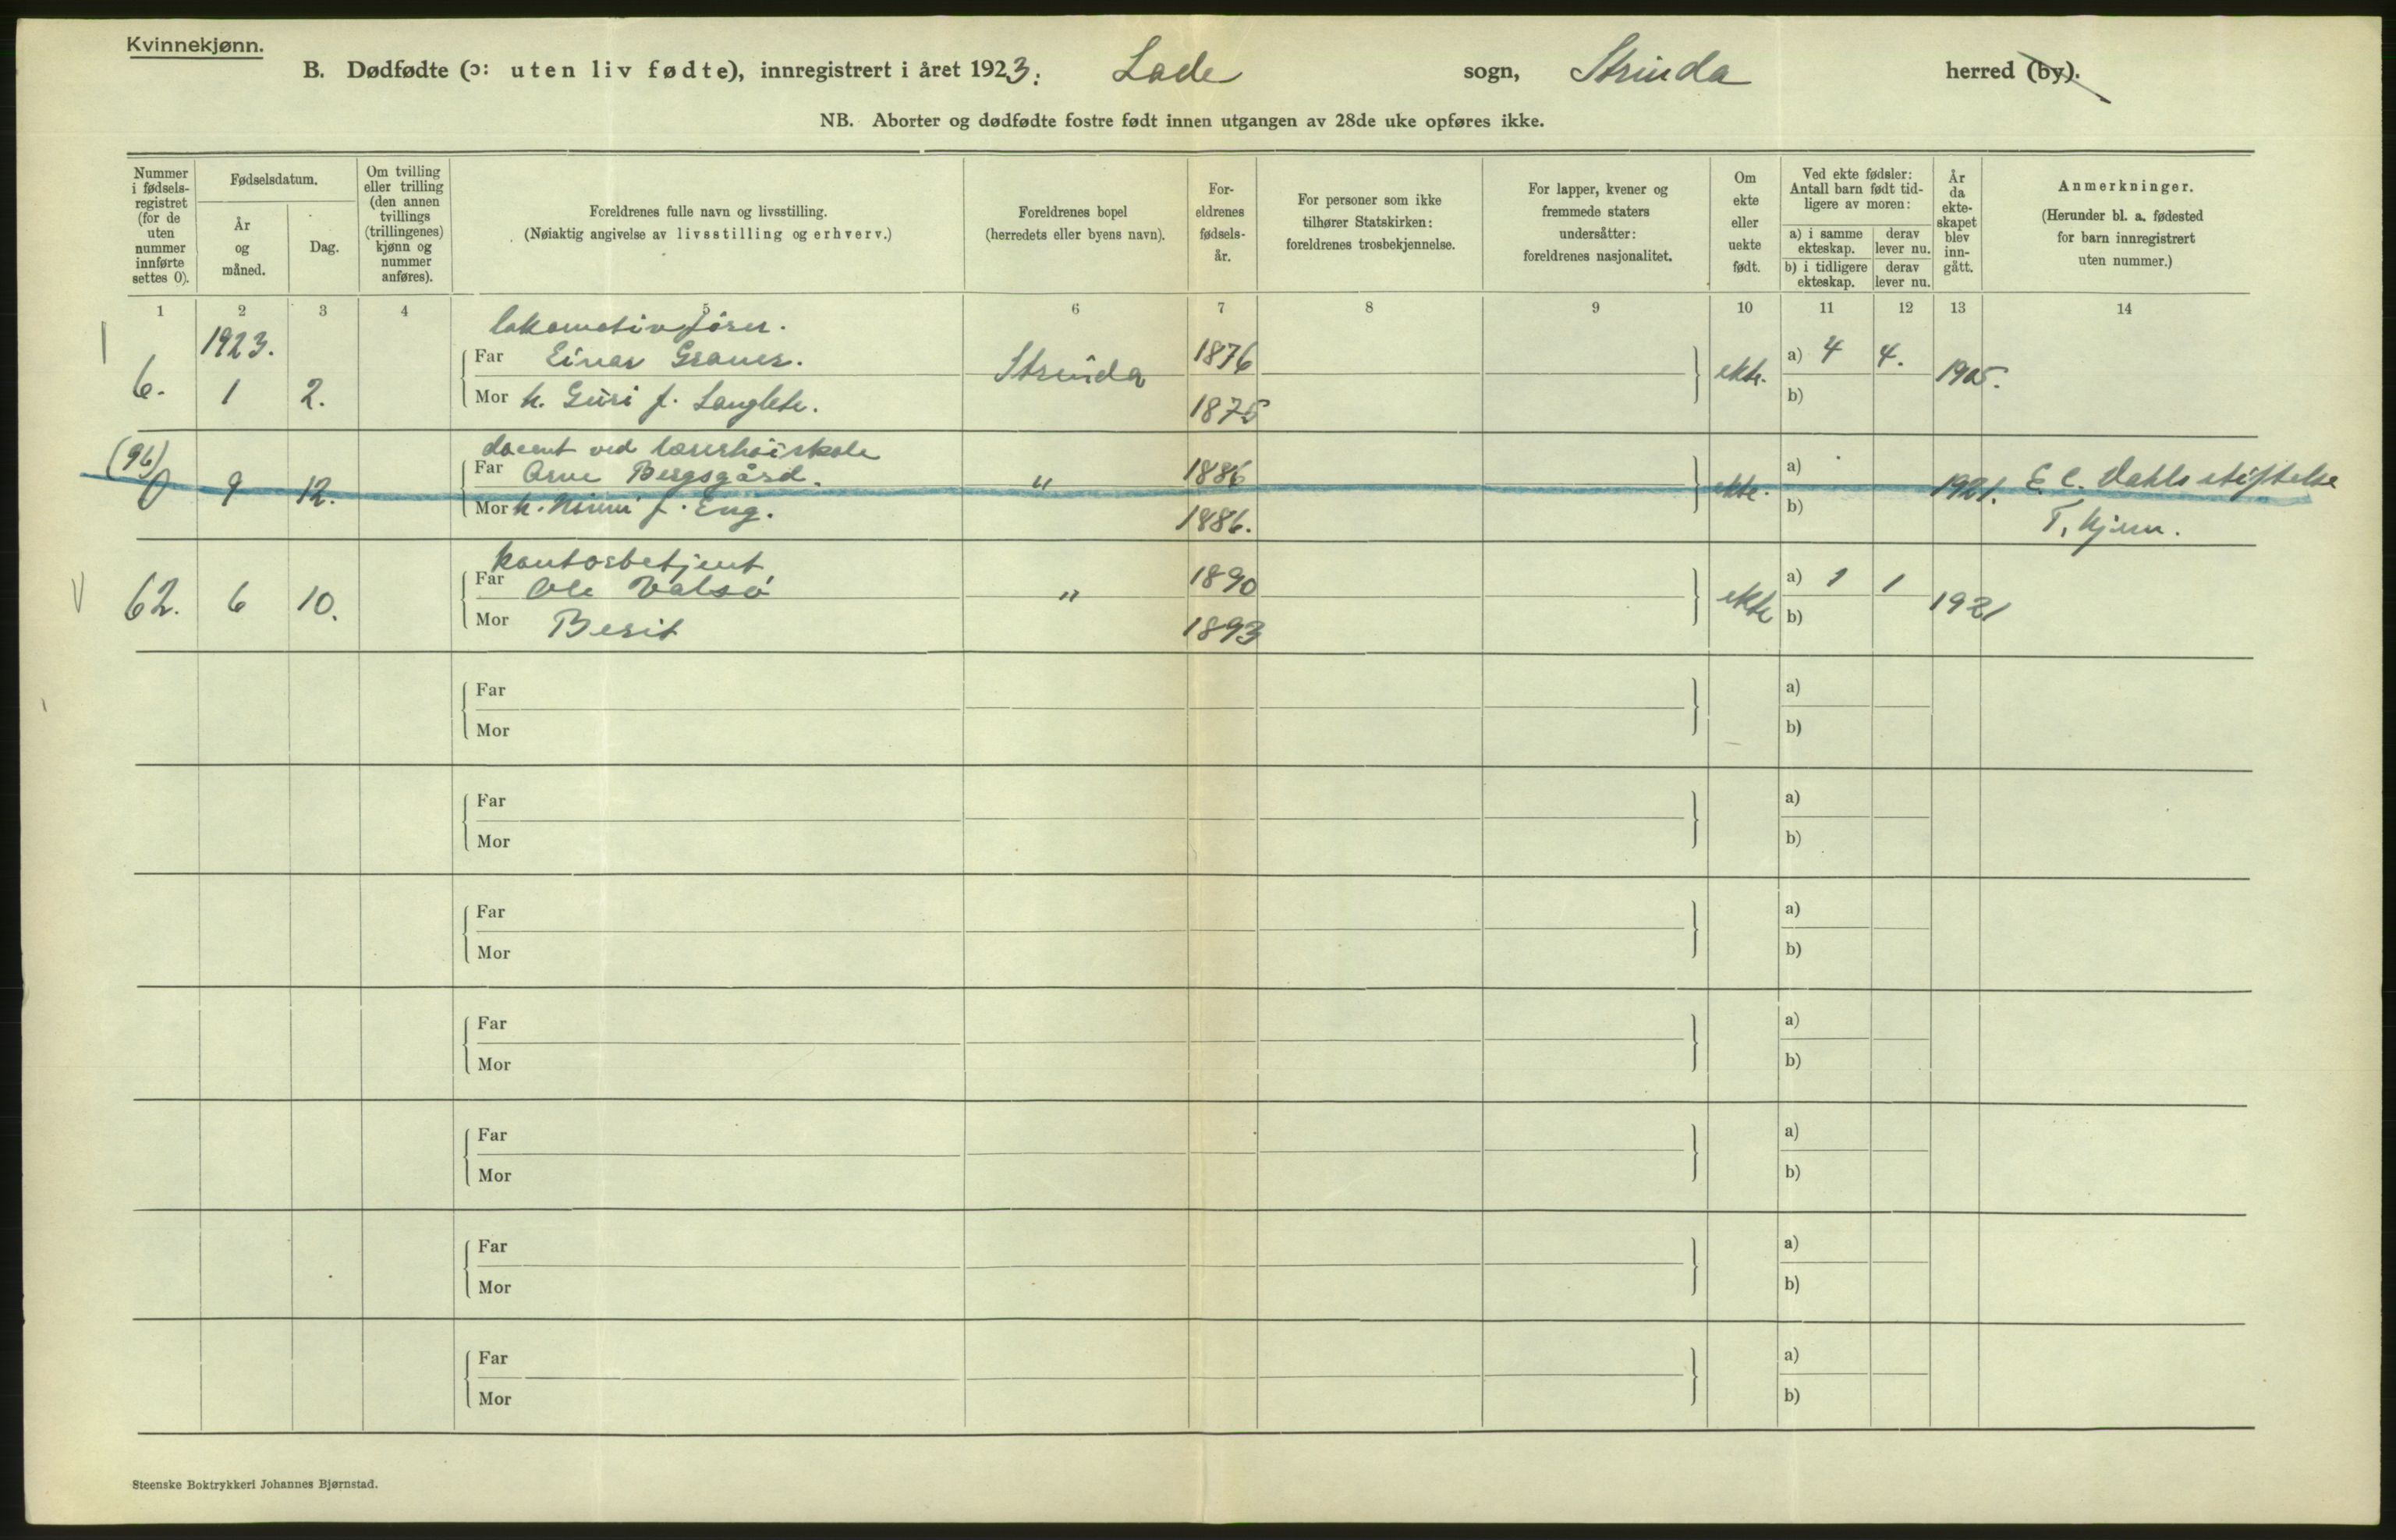 Kvinnekjønn.
B. Dødfødte (ɔ: uten liv fødte), innregistrert i året 1923. Lade sogn, Strinda herred (by).
NB. Aborter og dødfødte fostre født innen utgangen av 28de uke opføres ikke.
Nummer i fødsels-registret (for de uten nummer innførte settes 0).
Fødselsdatum.
År og måned.
Dag.
Om tvilling eller trilling (den annen tvillings (trillingenes) kjønn og nummer anføres).
Foreldrenes fulle navn og livsstilling.
(Nøiaktig angivelse av livsstilling og erhverv.)
Foreldrenes bopel
(herredets eller byens navn).
For-eldrenes fødsels-år.
For personer som ikke tilhører Statskirken: foreldrenes trosbekjennelse.
For lapper, kvener og fremmede staters undersåtter: foreldrenes nasjonalitet.
Om ekte eller uekte født.
Ved ekte fødsler: Antall barn født tid-ligere av moren:
a) i samme ekteskap.
derav lever nu.
b) i tidligere ekteskap.
derav lever nu.
År da ekte-skapet blev inn-gått.
Anmerkninger.
(Herunder bl. a. fødested for barn innregistrert uten nummer.)
1 2 3 4 5 6 7 8 9 10 11 12 13 14
1923.
lokomotivfører.
Far Einar Graner. 1876 a) 4 4.
6. 1 2. Strinda ekte. 1905.
Mor h. Guri f. Langlete. 1875 b)
(96) docent ved lærerhøiskole
Far Arne Bergsgård. 1886 a)
0 9 12. " ekte. 1921. E. C. Dahls stiftelse
Mor h. Ninni f. Eng. 1886. b) T. hjem.
kontorbetjent
Far Ole Valsø 1890 a) 1 1
V 62. 6 10. " ekte 1921
Mor Berit 1893 b)
Far a)
Mor b)
Far a)
Mor b)
Far a)
Mor b)
Far a)
Mor b)
Far a)
Mor b)
Far a)
Mor b)
Far a)
Mor b)
Steenske Boktrykkeri Johannes Bjørnstad.